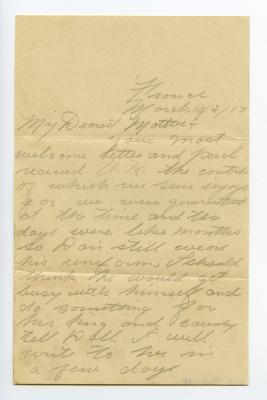 France
March 10/3/17
My Dearest Mother:
Your most
welcome letter and parcel
received O.K. the contents
of which we sure enjoyed
for we were quarantined
at the time and the
days were like months
So Dan still wears
his uniform I should
think he would get
busy with himself and
do something for
his king and country
tell Doll I will
write to her in
a few days